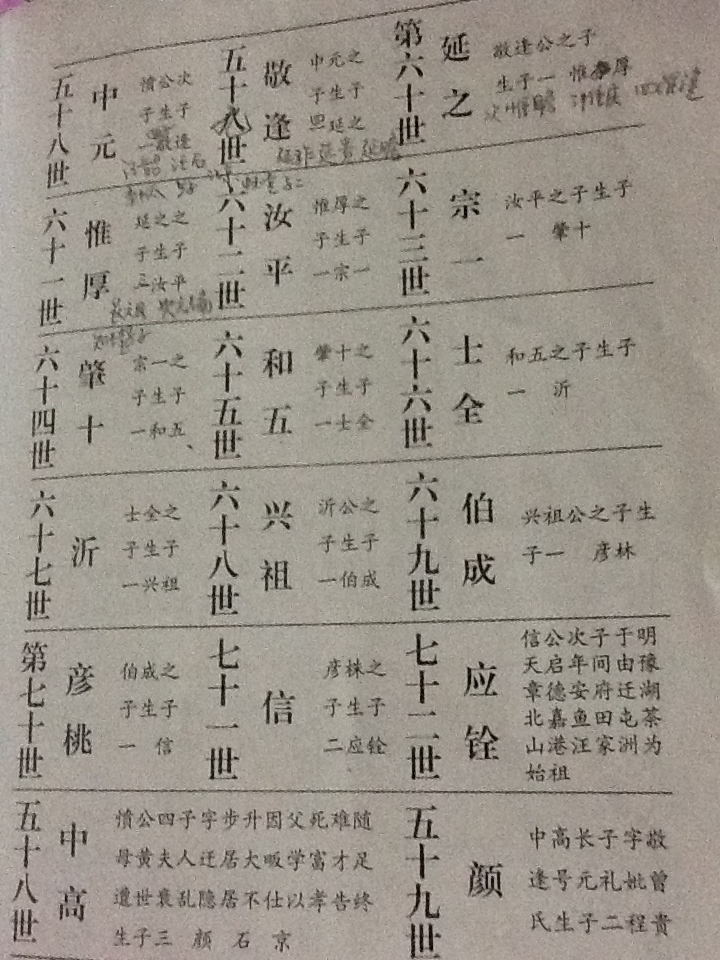 五十八世
中元
愩公次
子生子
敬逢
五十九世
敬逢
中元之
子生子
延之
第六十世
延之
敬逢公之子
生子一 惟厚
六十一世
惟厚
延之之
子生子
三汝平
六十二世
汝平
惟厚之
子生子
一宗一
六十三世
宗一
汝平之子生子
一 肇十
六十四世
肇十
宗一之
子生子
一和五
六十五世
和五
肇十之
子生子
一士全
六十六世
士全
和五之子生子
一 沂
六十七世
沂
士全之
子生子
一兴祖
六十八世
兴祖
沂公之
子生子
一伯成
六十九世
伯成
兴祖公之子生
子一 彦林
第七十世
彦桃
伯成之
子生子
一 信
七十一世
信
彦株之
子生子
二应铨
七十二世
应铨
信公次子于明
天启年间由豫
章德安府迁湖
北嘉鱼田屯茶
山港汪家洲为
始祖
五十八世
中高
愩公四子字步升因父死难随
母黄夫人迁居大畈学富才足
遭世衰乱隐居不仕以孝告终
生子三 颜 石 京
五十九世
颜
中高长子字敬
逢号元礼妣曾
氏生子二程贵